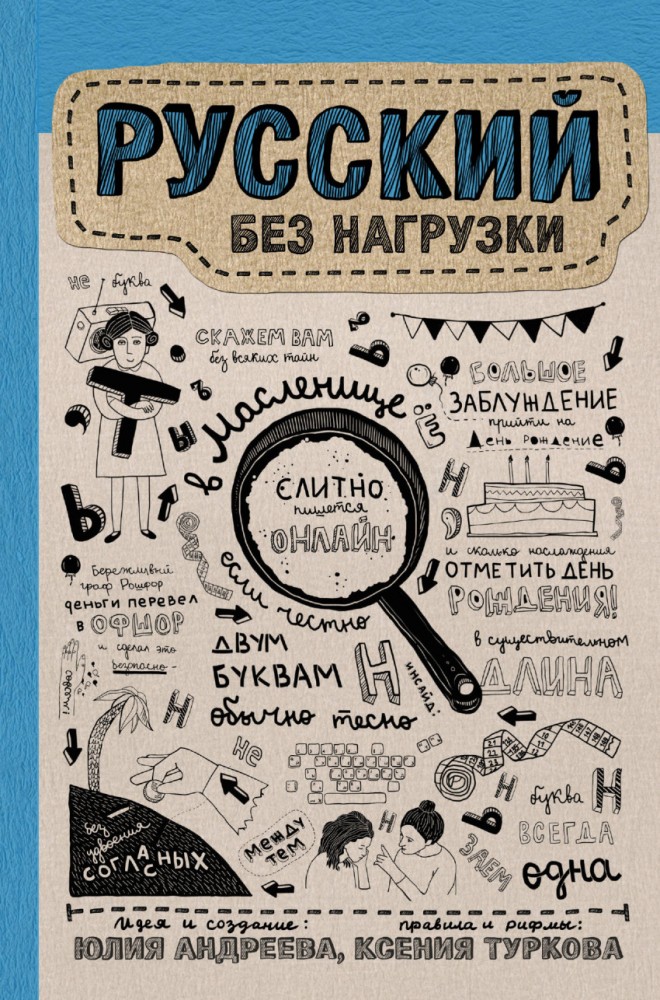 РУССКИЙ
БЕЗ НАГРУЗКИ
не буква
Т
СКАЖЕМ ВАМ
без всяких тайн
в масленице
СЛИТНО
пишется
ОНЛАЙН
БОЛЬШОЕ
ЗАБЛУЖДЕНИЕ
прийти на
День рождение
и сколько наслаждения
ОТМЕТИТЬ ДЕНЬ
РОЖДЕНИЯ!
Бережливый
граф Рошфор
деньги перевел
в ОФШОР
и сделал это
безопасно -
совет!
если честно
ДВУМ
БУКВАМ
Н
обычно тесно
инсайд:
в существительном
ДЛИНА
буква Н
ВСЕГДА
одна
не
без
удвоения
СОГЛАСНЫХ
МЕЖДУ
ТЕМ
ЗАЕМ
Идея и создание: правила и рифмы:
ЮЛИЯ АНДРЕЕВА, КСЕНИЯ ТУРКОВА